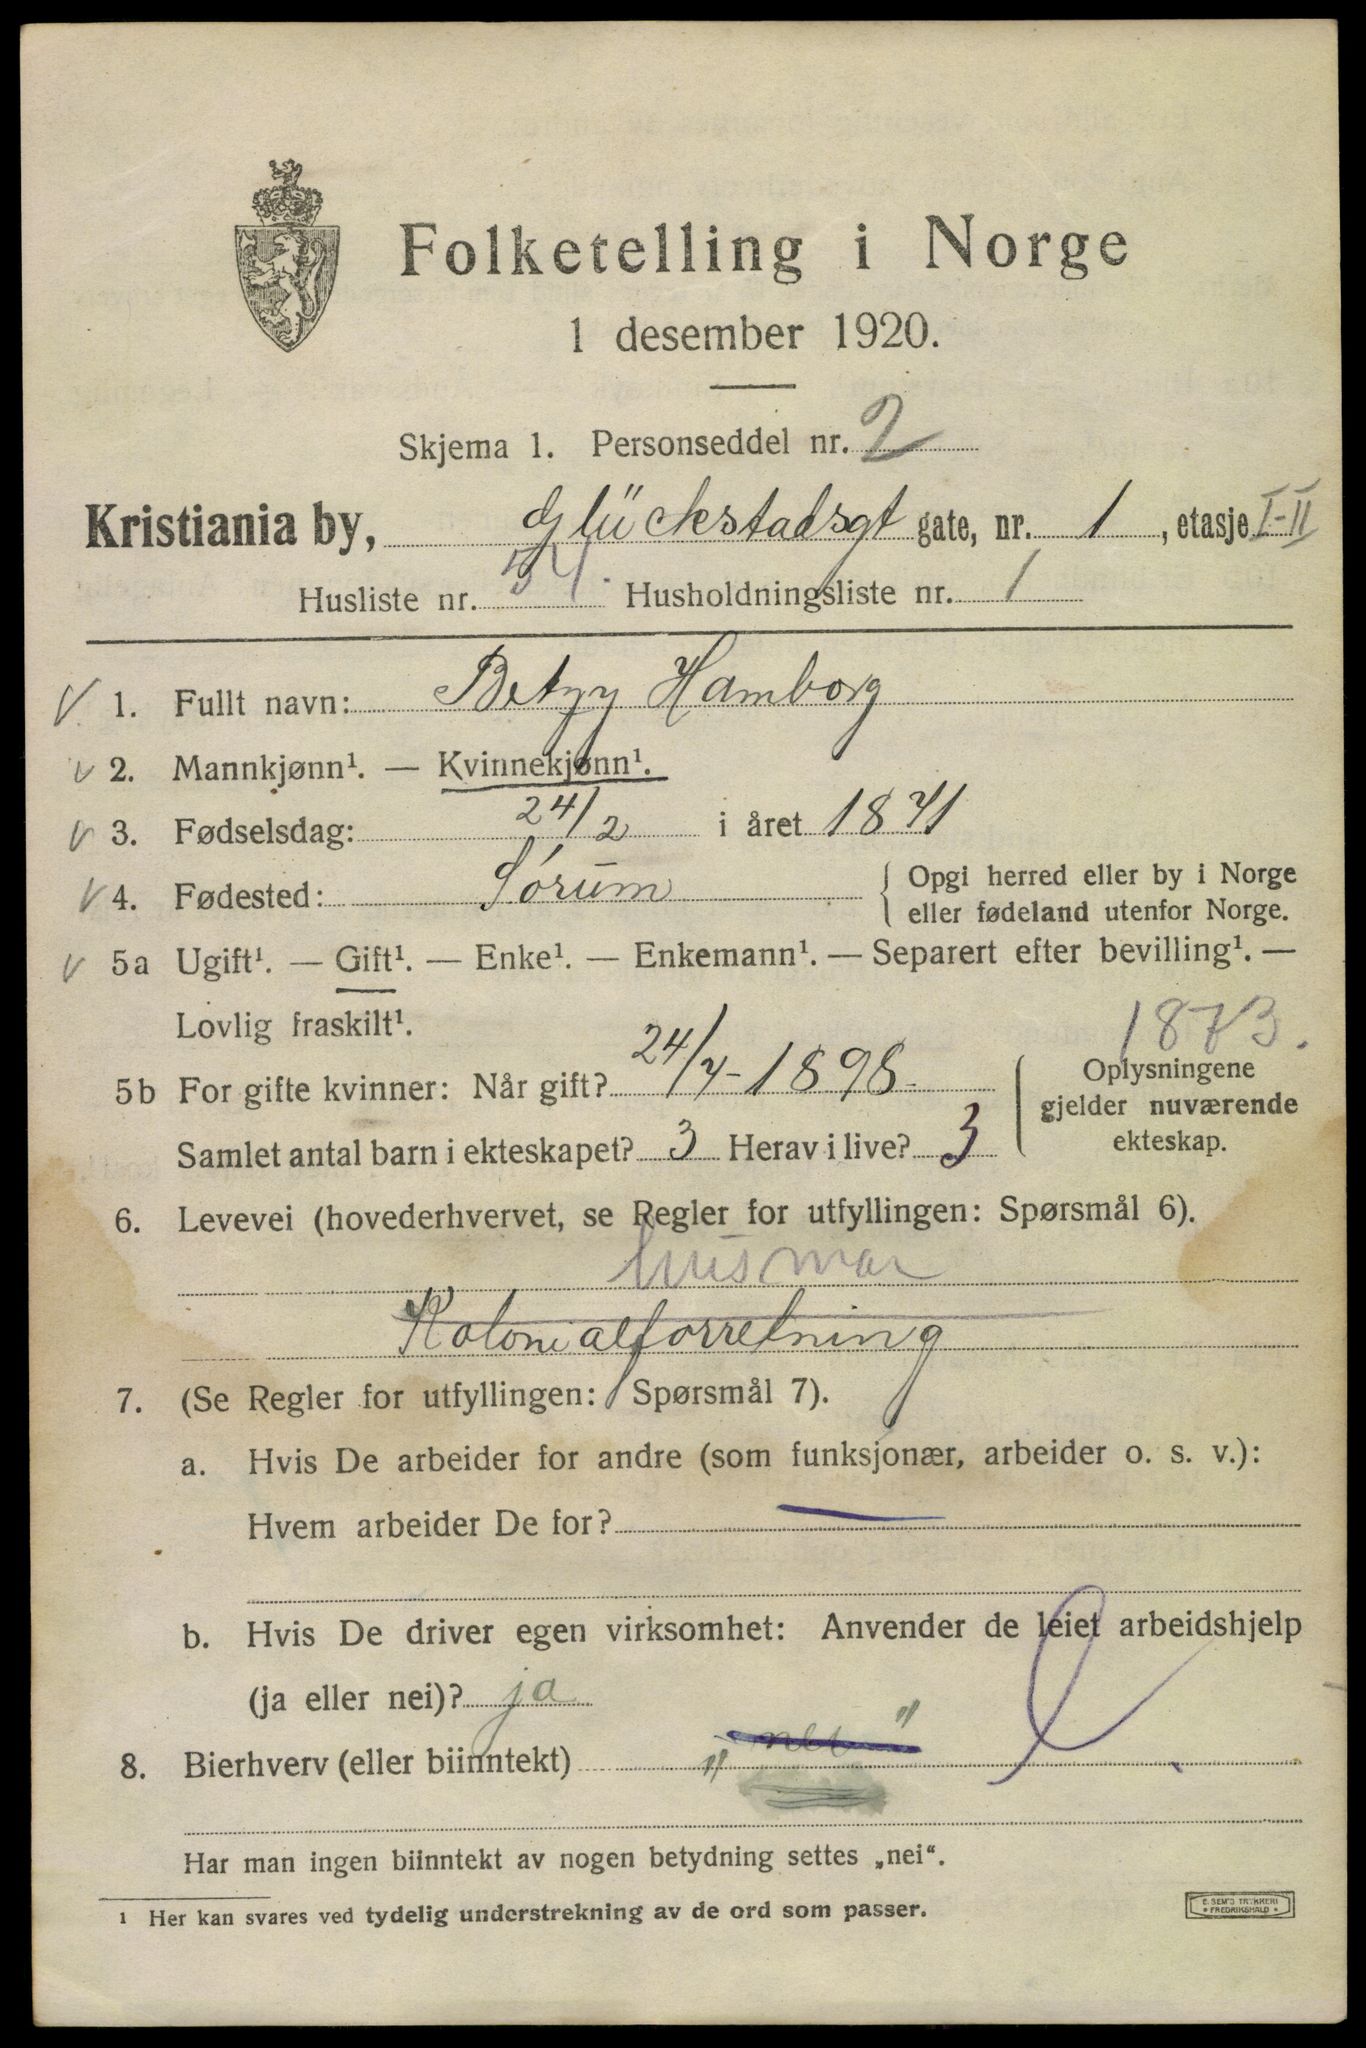 Folketelling i Norge
1 desember 1920.
Skjema 1. Personseddel nr. 2
Kristiania by, Glückstadsgt gate, nr. 1, etasje I-II
Husliste nr. 54. Husholdningsliste nr. 1
1. Fullt navn: Betzy Hamborg
2. Mannkjønn¹. — Kvinnekjønn¹.
3. Fødselsdag: 24/2 i året 1871
4. Fødested: Sørum { Opgi herred eller by i Norge
eller fødeland utenfor Norge.
5a Ugift¹. — Gift¹. — Enke¹. — Enkemann¹. — Separert efter bevilling¹. —
Lovlig fraskilt¹.
1873.
5b For gifte kvinner: Når gift? 24/7-1898. Oplysningene
gjelder nuværende
Samlet antal barn i ekteskapet? 3 Herav i live? 3 ekteskap.
6. Levevei (hovederhvervet, se Regler for utfyllingen: Spørsmål 6).
husmor
Kolonialforretning
7. (Se Regler for utfyllingen: Spørsmål 7).
a. Hvis De arbeider for andre (som funksjonær, arbeider o. s. v.):
Hvem arbeider De for? —
b. Hvis De driver egen virksomhet: Anvender de leiet arbeidshjelp
(ja eller nei)? ja
8. Bierhverv (eller biinntekt) „ nei "
Har man ingen biinntekt av nogen betydning settes „nei“.
1 Her kan svares ved tydelig understrekning av de ord som passer.
E. SEM'S TRYKKERI
* FREDRIKSHALD *